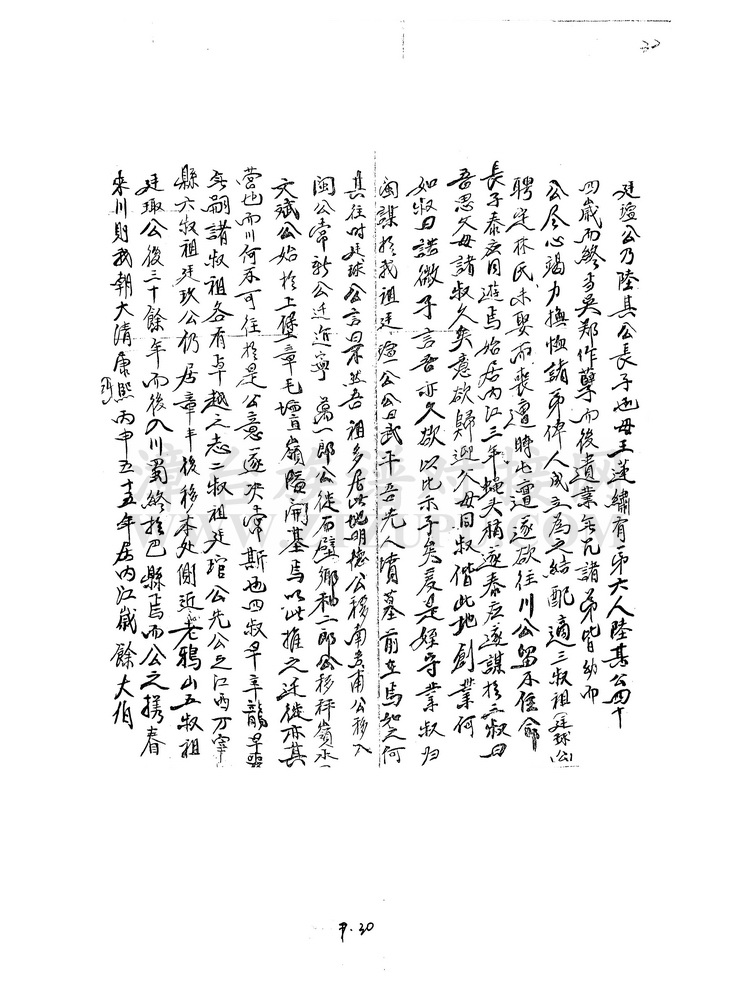 廷瑄公乃陸其公長子也母王蓮繡有弟六人陸其公四十
四歲而終高吳鄭作孽而後遺業無几諸弟皆幼而
公尽心竭力撫恤諸弟俾人成立為之結配適三叔祖廷球公
聘定林氏未娶而喪遭時屯邅遂欲往川公留不住命
長子泰彦同遊焉始居內江三年蠅大稍遂泰彦遂謀於三叔曰
吾思父母諸叔久矣意欲歸迎父母同叔偕此地創業何
如叔曰諾微子言吾亦久欲以此示子矣爰是姪守業叔归
閩謀於我祖廷瑄公公曰武平吾先人墳墓前在焉如之何
其往时廷球公言曰不然吾祖多居此地明德公移南安甫公移入
閩公常新公迁近寧萬一郎公徙石壁鄉秘二郎公移秤嶺水
文斌公始於上堡章毛壇嶺隘開基焉以此推之迁徙亦其
常也而川何不可往於是公意遂决常斯也四叔早卒龍早喪
無嗣諸叔祖各有卓越之志二叔祖廷琯公先公之江西万宰
縣六叔祖廷玖公仍居章丰後移本处側近老鴉山五叔祖
廷瑯公後三十餘年而後入川蜀終於巴縣焉而公之携眷
來川則我朝大清康熙丙申五十五年居內江歲餘大伯
30
P.30